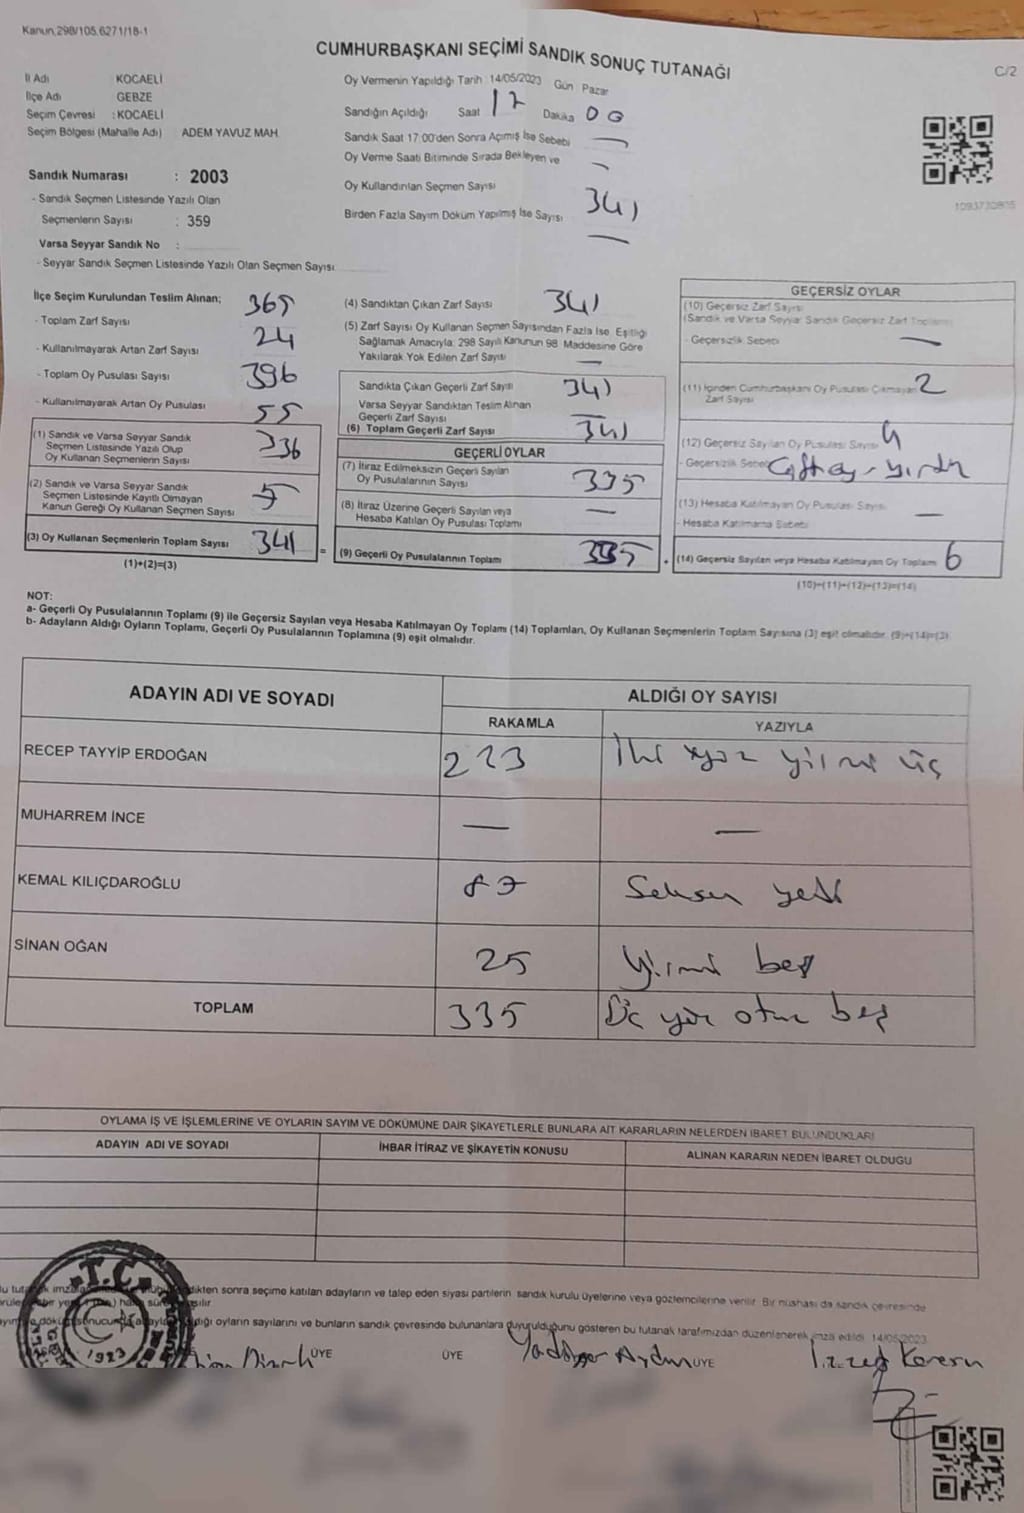 Kanun.298/105.6271/18-1
CUMHURBAŞKANI SEÇİMİ SANDIK SONUÇ TUTANAĞI
C/2
İl Adı : KOCAELİ
İlçe Adı GEBZE
Seçim Çevresi : KOCAELİ
Seçim Bölgesi (Mahalle Adı) ADEM YAVUZ MAH.
Sandık Numarası : 2003
- Sandık Seçmen Listesinde Yazılı Olan
Seçmenlerin Sayısı : 359
Varsa Seyyar Sandık No :
- Seyyar Sandık Seçmen Listesinde Yazılı Olan Seçmen Sayısı:
Oy Vermenin Yapıldığı Tarih 14/05/2023 Gün Pazar
Sandığın Açıldığı Saat 17 Dakika 00
Sandık Saat 17:00'den Sonra Açımış İse Sebebi —
Oy Verme Saati Bitiminde Sırada Bekleyen ve —
Oy Kullandırılan Seçmen Sayısı 341
Birden Fazla Sayım Döküm Yapılmış İse Sayısı —
1093730805
İlçe Seçim Kurulundan Teslim Alınan;
- Toplam Zarf Sayısı 365
- Kullanılmayarak Artan Zarf Sayısı 24
- Toplam Oy Pusulası Sayısı 396
- Kullanılmayarak Artan Oy Pusulası 55
(1) Sandık ve Varsa Seyyar Sandık
Seçmen Listesinde Yazılı Olup
Oy Kullanan Seçmenlerin Sayısı 336
(2) Sandık ve Varsa Seyyar Sandık
Seçmen Listesinde Kayıtlı Olmayan
Kanun Gereği Oy Kullanan Seçmen Sayısı 5
(3) Oy Kullanan Seçmenlerin Toplam Sayısı 341
(1)+(2)=(3)
(4) Sandıktan Çıkan Zarf Sayısı 341
(5) Zarf Sayısı Oy Kullanan Seçmen Sayısından Fazla İse, Eşitliği
Sağlamak Amacıyla; 298 Sayılı Kanunun 98. Maddesine Göre
Yakılarak Yok Edilen Zarf Sayısı —
Sandıkta Çıkan Geçerli Zarf Sayısı 341
Varsa Seyyar Sandıktan Teslim Alınan
Geçerli Zarf Sayısı —
(6) Toplam Geçerli Zarf Sayısı 341
GEÇERLİ OYLAR
(7) İtiraz Edilmeksizin Geçerli Sayılan
Oy Pusulalarının Sayısı 335
(8) İtiraz Üzerine Geçerli Sayılan veya
Hesaba Katılan Oy Pusulası Toplamı —
= (9) Geçerli Oy Pusulalarının Toplamı 335
GEÇERSİZ OYLAR
(10) Geçersiz Zarf Sayısı
(Sandık ve Varsa Seyyar Sandık Geçersiz Zarf Toplamı)
- Geçersizlik Sebebi —
(11) İçinden Cumhurbaşkanı Oy Pusulası Çıkmayan 2
Zarf Sayısı
(12) Geçersiz Sayılan Oy Pusulası Sayısı 4
- Geçersizlik Sebebi Çift oy - yırtık
(13) Hesaba Katılmayan Oy Pusulası Sayısı —
- Hesaba Katılmama Sebebi
+ (14) Geçersiz Sayılan veya Hesaba Katılmayan Oy Toplamı 6
(10)+(11)+(12)+(13)=(14)
NOT:
a- Geçerli Oy Pusulalarının Toplamı (9) ile Geçersiz Sayılan veya Hesaba Katılmayan Oy Toplamı (14) Toplamları, Oy Kullanan Seçmenlerin Toplam Sayısına (3) eşit olmalıdır. (9)+(14)=(3)
b- Adayların Aldığı Oyların Toplamı, Geçerli Oy Pusulalarının Toplamına (9) eşit olmalıdır.
ADAYIN ADI VE SOYADI ALDIĞI OY SAYISI
RAKAMLA YAZIYLA
RECEP TAYYİP ERDOĞAN 223 İki yüz yirmi üç
MUHARREM İNCE — —
KEMAL KILIÇDAROĞLU 87 Seksen yedi
SİNAN OĞAN 25 Yirmi beş
TOPLAM 335 Üç yüz otuz beş
OYLAMA İŞ VE İŞLEMLERİNE VE OYLARIN SAYIM VE DÖKÜMÜNE DAİR ŞİKAYETLERLE BUNLARA AİT KARARLARIN NELERDEN İBARET BULUNDUKLARI
ADAYIN ADI VE SOYADI İHBAR İTİRAZ VE ŞİKAYETİN KONUSU ALINAN KARARIN NEDEN İBARET OLDUĞU
sonra seçime katılan adayların ve talep eden siyasi partilerin sandık kurulu üyelerine veya gözlemcilerine verilir. Bir nüshası da sandık çevresinde
oyların sayılarını ve bunların sandık çevresinde bulunanlara duyurulduğunu gösteren bu tutanak tarafımızdan düzenlenerek imza edildi. 14/05/2023
T.C.
1923
ÜYE ÜYE Aydın ÜYE İzzet